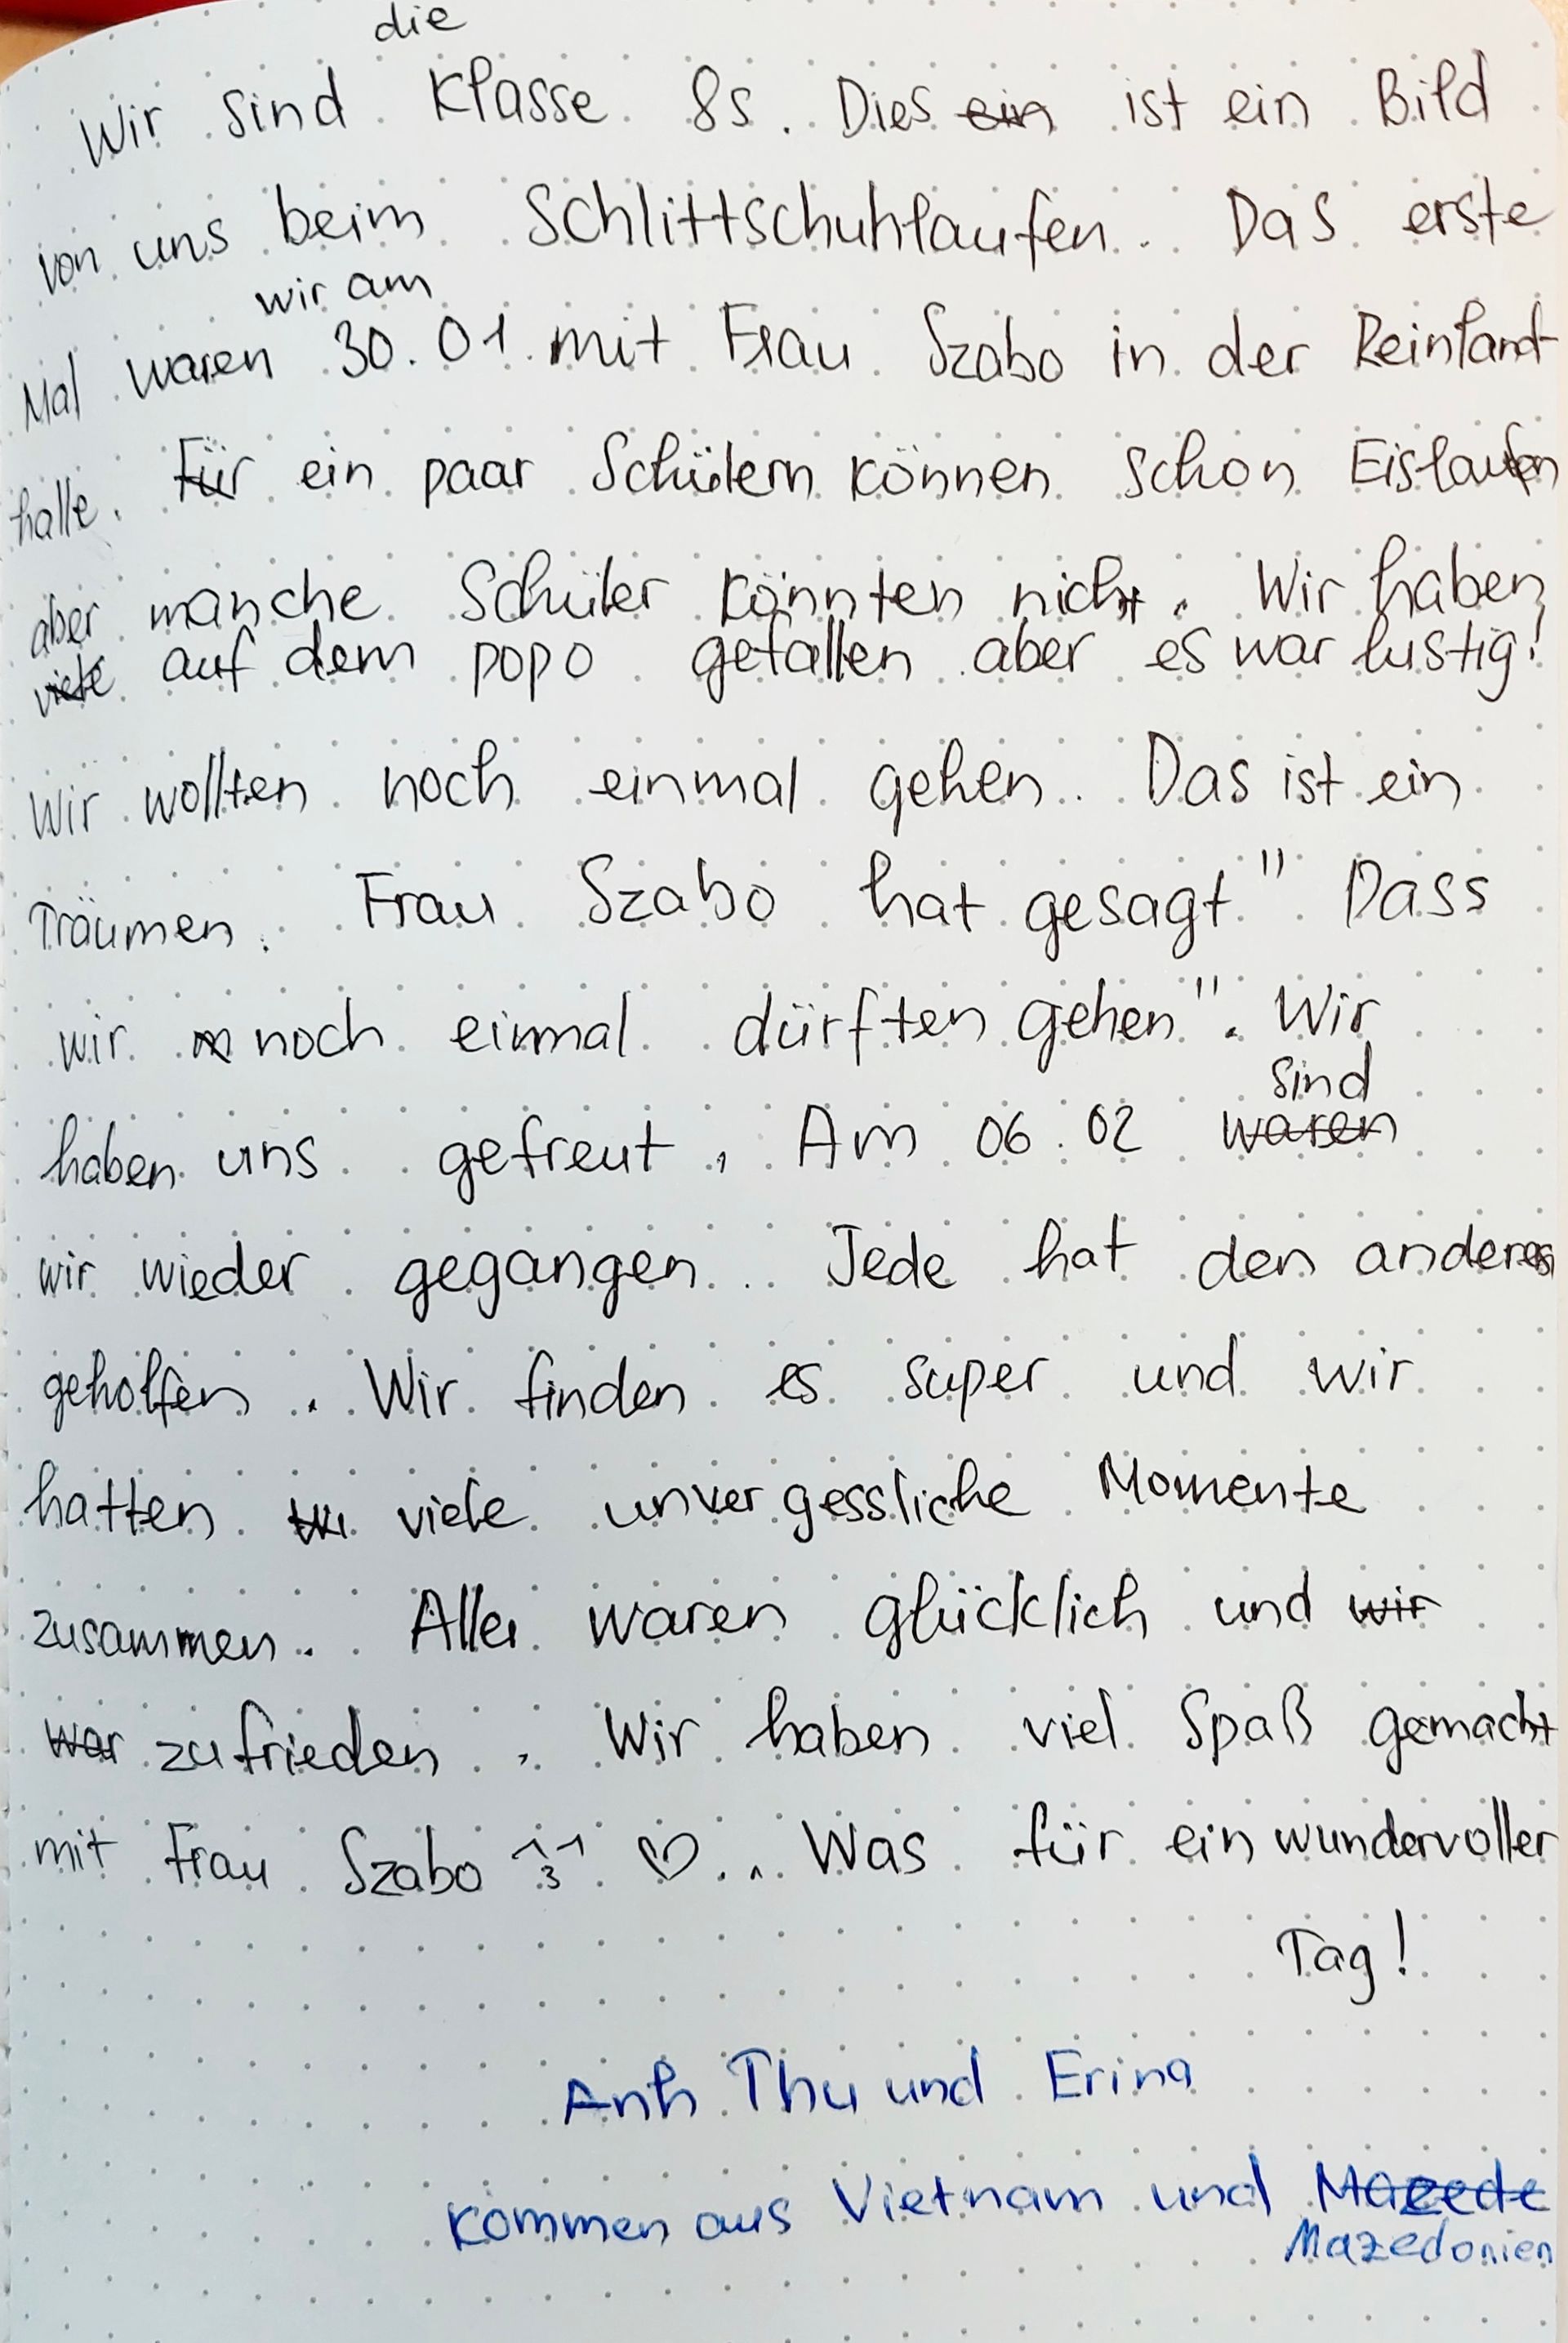 die
Wir sind Klasse 8s. Dies ein ist ein Bild
von uns beim Schlittschuhlaufen. Das erste
wir am
Mal waren 30.01 mit Frau Szabo in der Reinland
halle. Für ein paar Schülern können schon Eislaufen
aber manche Schüler könnten nicht. Wir haben
viele auf dem popo gefallen aber es war lustig!
Wir wollten noch einmal gehen. Das ist ein
Träumen. Frau Szabo hat gesagt " Dass
wir noch einmal dürften gehen". Wir
sind
haben uns gefreut, Am 06.02 waren
wir wieder gegangen. Jede hat den anderen
geholfen. Wir finden es super und wir
hatten viele unvergessliche Momente
zusammen. Alle waren glücklich und wir
war zufrieden. Wir haben viel Spaß gemacht
mit Frau Szabo ^3^ ♡. Was für ein wundervoller
Tag!
Anh Thu und Erina
kommen aus Vietnam und Mazede
Mazedonien